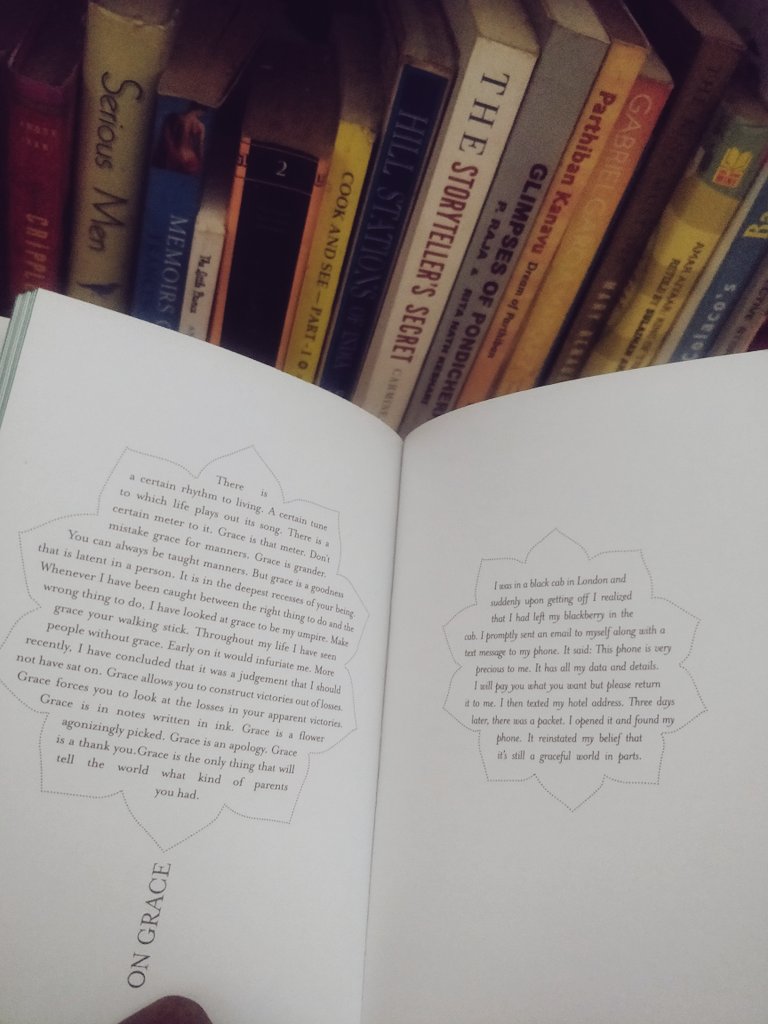 Serious Men
MEMOIRS
2
COOK AND SEE — PART - 1
HILL STATIONS OF INDIA
THE STORYTELLER'S SECRET
CARMINE
GLIMPSES OF PONDICHERRY
P. RAJA &
Parthiban Kanavu Dream of Parthiban
GABRIEL
There is
a certain rhythm to living. A certain tune
to which life plays out its song. There is a
certain meter to it. Grace is that meter. Don't
mistake grace for manners. Grace is grander.
You can always be taught manners. But grace is a goodness
that is latent in a person. It is in the deepest recesses of your being.
Whenever I have been caught between the right thing to do and the
wrong thing to do, I have looked at grace to be my umpire. Make
grace your walking stick. Throughout my life I have seen
people without grace. Early on it would infuriate me. More
recently, I have concluded that it was a judgement that I should
not have sat on. Grace allows you to construct victories out of losses.
Grace forces you to look at the losses in your apparent victories.
Grace is in notes written in ink. Grace is a flower
agonizingly picked. Grace is an apology. Grace
is a thank you.Grace is the only thing that will
tell the world what kind of parents
you had.
ON GRACE
I was in a black cab in London and
suddenly upon getting off I realized
that I had left my blackberry in the
cab. I promptly sent an email to myself along with a
text message to my phone. It said: This phone is very
precious to me. It has all my data and details.
I will pay you what you want but please return
it to me. I then texted my hotel address. Three days
later, there was a packet. I opened it and found my
phone. It reinstated my belief that
it's still a graceful world in parts.